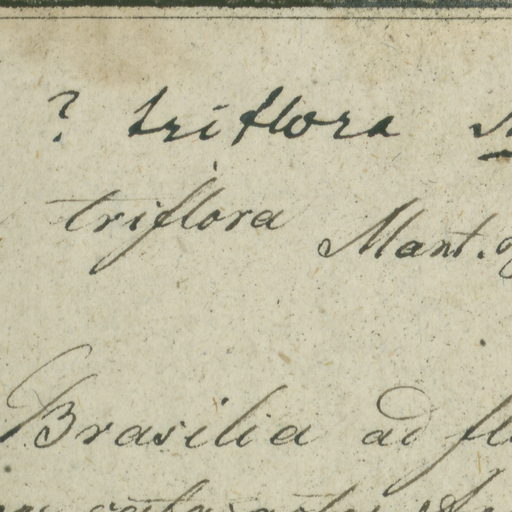 ? triflora
triflora Mant.
Brasilia ad fl